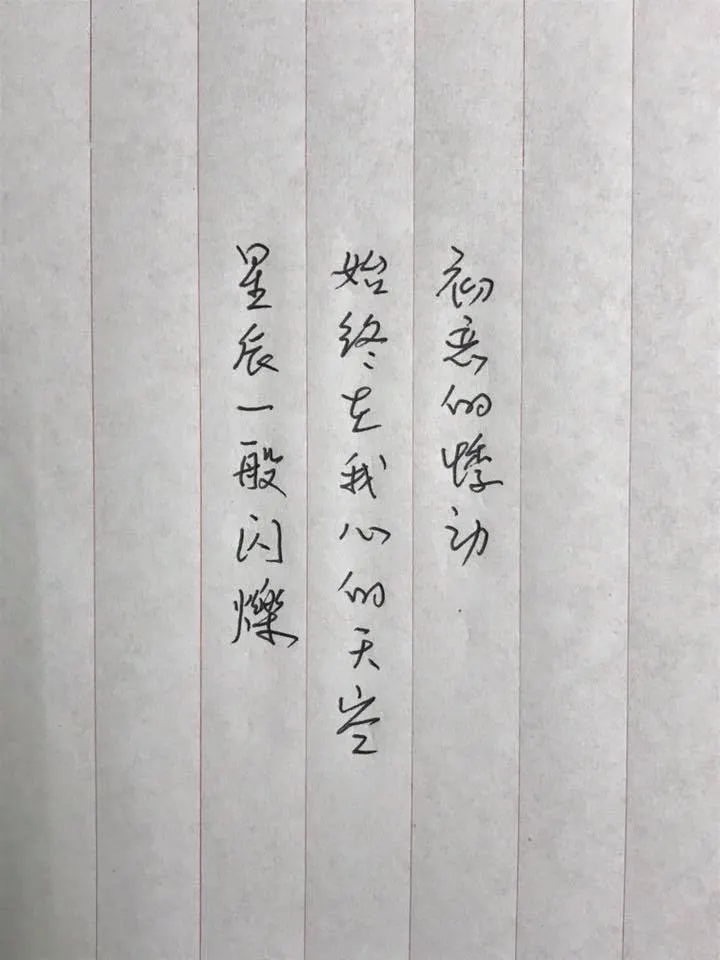 初恋的悸动
始终在我心的天空
星辰一般闪爍